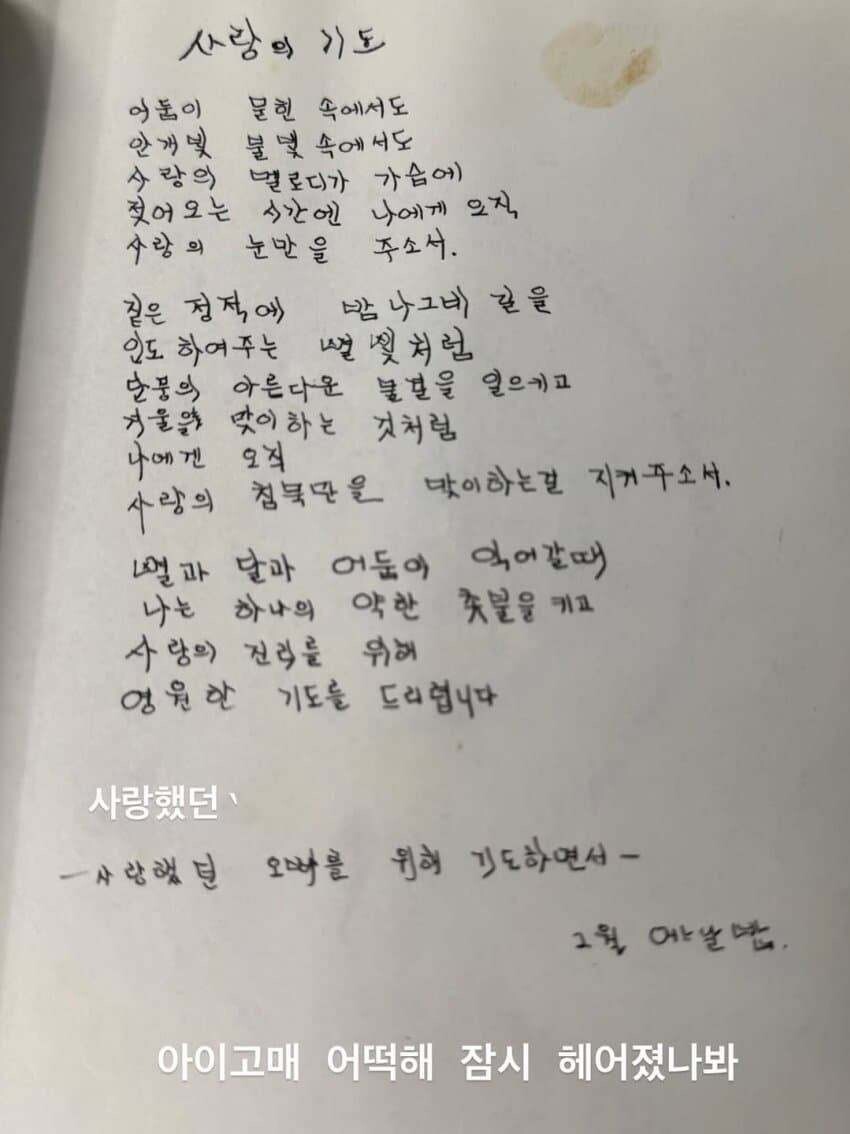 사랑의 기도
어둠이 묻힌 속에서도
안개빛 불빛 속에서도
사랑의 멜로디가 가슴에
젖어오는 시간엔 나에게 오직
사랑의 눈만을 주소서.
짙은 정적에 밤나그네 길을
인도하여주는 별빛처럼
단풍의 아름다운 불길을 일으키고
겨울을 맞이하는 것처럼
나에겐 오직
사랑의 침묵만을 맞이하는걸 지켜주소서.
별과 달과 어둠이 익어갈때
나는 하나의 약한 촛불을 키고
사랑의 진리를 위해
영원한 기도를 드리렵니다
사랑했던
-사랑했던 오빠를 위해 기도하면서-
2월 어느날 밤.
아이고매 어떡해 잠시 헤어졌나봐